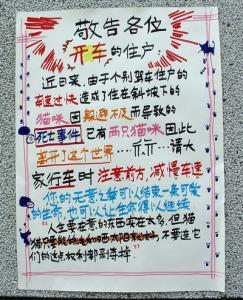 敬告各位
开车的住户:
近日来,由于个别驾车住户的
车速过快造成了住在斜坡下的
猫咪因躲避不及而导致的
死亡事件,已有两只猫咪因此
离开了这个世界……所……请大
家行车时注意前方,减慢车速
您的无意之举可以结束一条可爱
的生命,也可以让生命得以继续
"人生要在意的东西实在太多,但猫
猫只要能够 晒太阳就好,不要连它
们的这点权利都